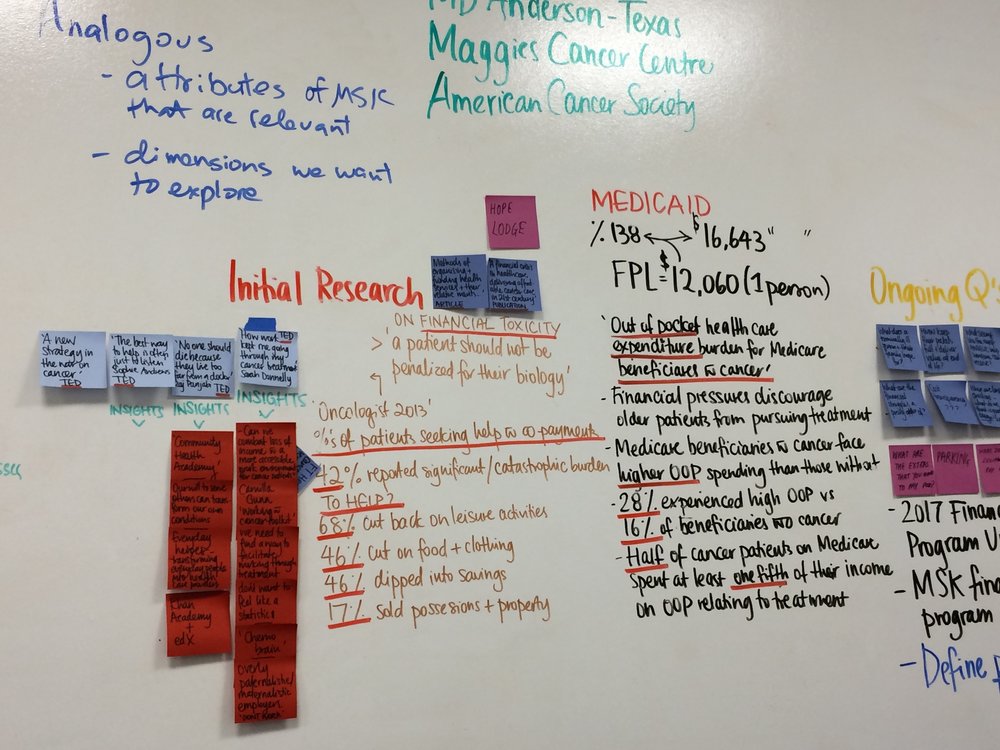 Analogous
- attributes of MSK
that are relevant
- dimensions we want
to explore
MD Anderson-Texas
Maggies Cancer Centre
American Cancer Society
HOPE
LODGE
Methods of
organising +
funding health
services + their
relative merits.
ARTICLE
A financial crisis
in healthcare
delivering afford
able cancer care
in 21st century'
PUBLICATION
Initial Research
'A new
strategy in
the war on
cancer'
TED
'The best way
to help is often
just to listen
Sophie Andrews
TED
INSIGHTS
'No one should
die because
they live too
far from a doctor'
by Panjabi TED
INSIGHTS
'How work TED
kept me going
through my
cancer treatment
Sarah Donnelly
INSIGHTS
Community
Health
Academy'
Our will to serve
others can trans
form our own
conditions
Everyday
heroes -
transforming
everyday people
into health
care providers
Khan
Academy
+
edX
- Can we
combat loss of
income w a
more accessible
work environment
for cancer patients
Camilla
'working w
cancer toolkit'
we need to
find a way to
facilitate
working through
treatment
dont want to
feel like a
statistic
'Chemo
brain'
overly
paternalistic/
maternalistic
employers
'ON FINANCIAL TOXICITY
> 'a patient should not be
penalized for their biology'
'Oncologist 2013'
%'s of patients seeking help w co payments
42% reported significant/catastrophic burden
TO HELP?
68% cut back on leisure activities
46% cut on food + clothing
46% dipped into savings
17% sold possessions + property
MEDICAID
% 138 $16,643 " "
FPL = $12,060 (1 person)
'Out of pocket health care
expenditure burden for Medicare
beneficiaries w cancer'
- Financial pressures discourage
older patients from pursuing treatment
- Medicare beneficiaries w cancer face
higher OOP spending than those without
- 28% experienced high OOP vs
16% of beneficiaries w/o cancer
- Half of cancer patients on Medicare
spent at least one fifth of their income
on OOP relating to treatment
Ongoing Q's
WHAT ARE
THE EXTRAS
THAT YOU NEED
TO PAY FOR?
PARKING
- 2017 Financ
Program
- MSK fina
program
- Define